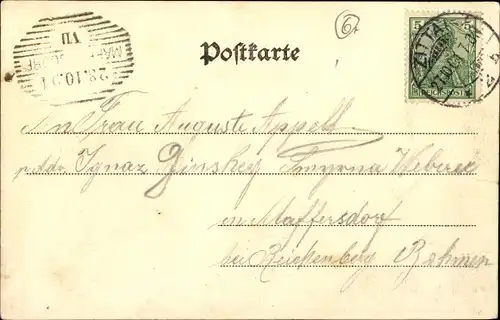 6
5 5
REICHSPOST
ZITTAU
MAFFERSDORF
28.10.01
VII
Postkarte
An Frau Auguste Appelt
p. Adr. Ignaz Ginzkey Smyrna Weberei
in Maffersdorf
bei Reichenberg Böhmen